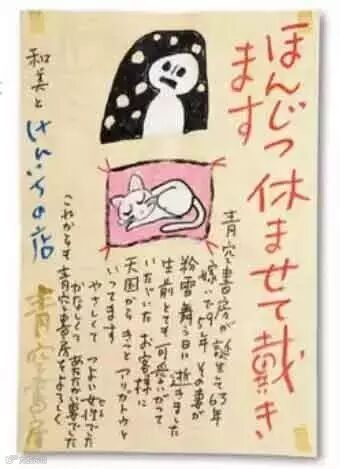 ほんじつ 休ませて戴き
ます
青空書房が誕生して
嫁いで 年 その妻が
粉雪舞う日に 逝きました
生前とても可愛いがって
いただいた お客様に
天国から きっと アリガトウと
いってます
やさしくて つよい女性でした
かなしくて あたたかい妻でした
これからも 青空書房をよろしく
和美と けんいちの店
青空書房